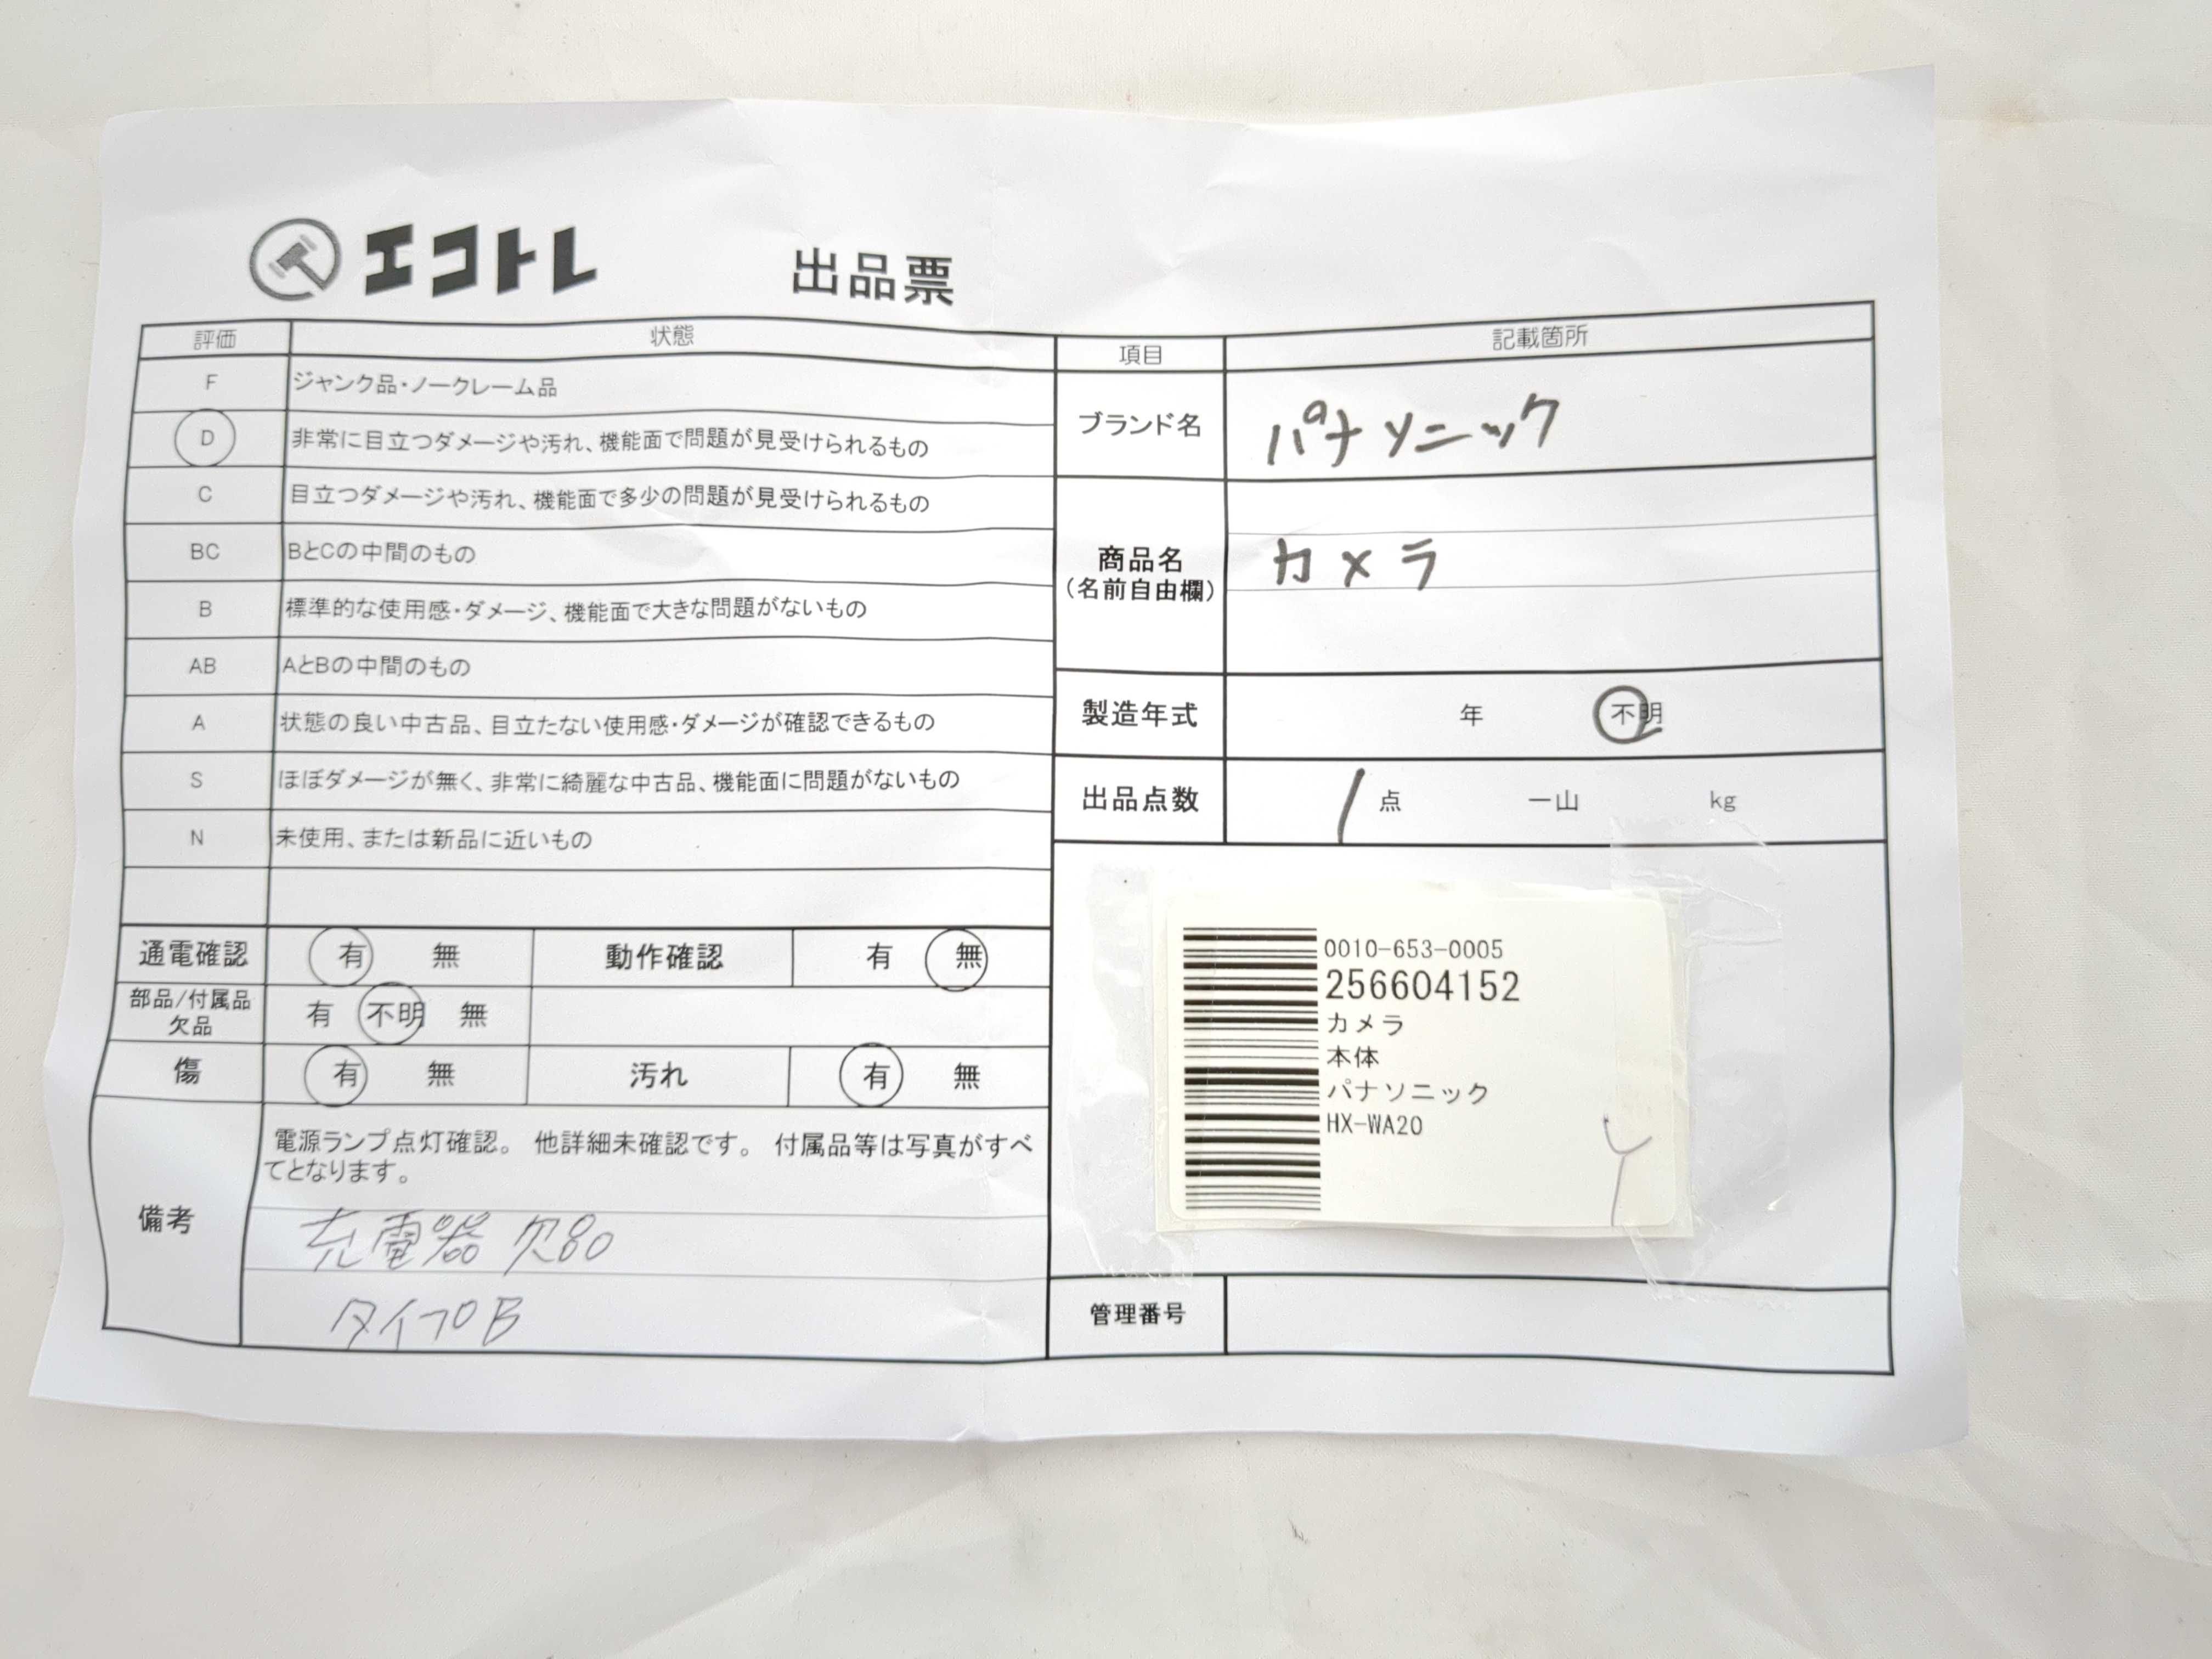 エコトレ 出品票
評価 状態
F ジャンク品・ノークレーム品
D 非常に目立つダメージや汚れ、機能面で問題が見受けられるもの
C 目立つダメージや汚れ、機能面で多少の問題が見受けられるもの
BC BとCの中間のもの
B 標準的な使用感・ダメージ、機能面で大きな問題がないもの
AB AとBの中間のもの
A 状態の良い中古品、目立たない使用感・ダメージが確認できるもの
S ほぼダメージが無く、非常に綺麗な中古品、機能面に問題がないもの
N 未使用、または新品に近いもの
通電確認 有 無 動作確認 有 無
部品/付属品
欠品 有 不明 無
傷 有 無 汚れ 有 無
備考
電源ランプ点灯確認。 他詳細未確認です。 付属品等は写真がすべ
てとなります。
充電器 欠品
タイプB
項目 記載箇所
ブランド名 パナソニック
商品名
(名前自由欄)
カメラ
製造年式 年 不明
出品点数 1 点 一山 kg
0010-653-0005
256604152
カメラ
本体
パナソニック
HX-WA20
管理番号